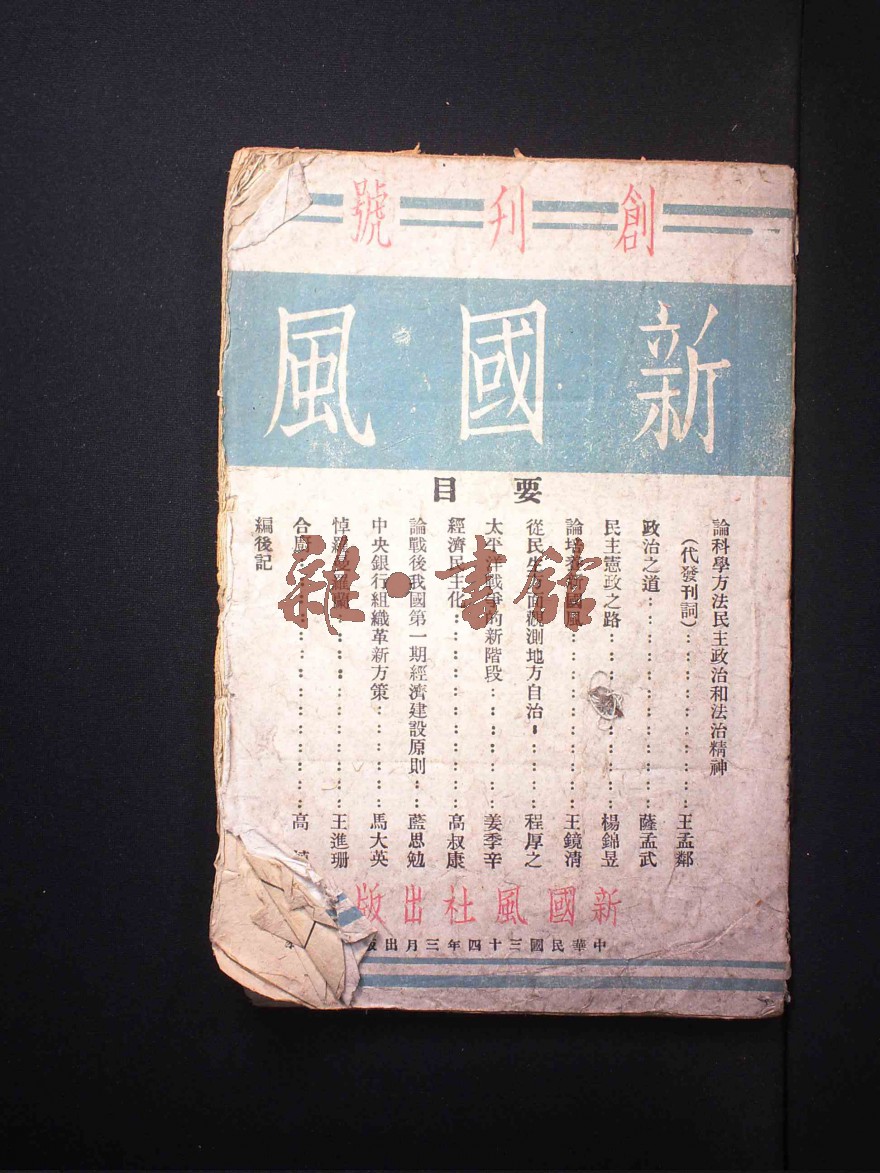 創刊號
新國風
要目
論科學方法民主政治和法治精神
(代發刊詞)……王孟鄰
政治之道……薩孟武
民主憲政之路……楊錦昱
論培養新國風……王鏡清
從民生方面觀測地方自治……程厚之
太平洋戰爭的新階段……姜季辛
經濟民主化……高叔康
論戰後我國第一期經濟建設原則……藍思勉
中央銀行組織革新方策……馬大英
悼羅曼羅蘭……王進珊
合……高
編後記
新國風社出版
中華民國三十四年三月出版
雜·書館